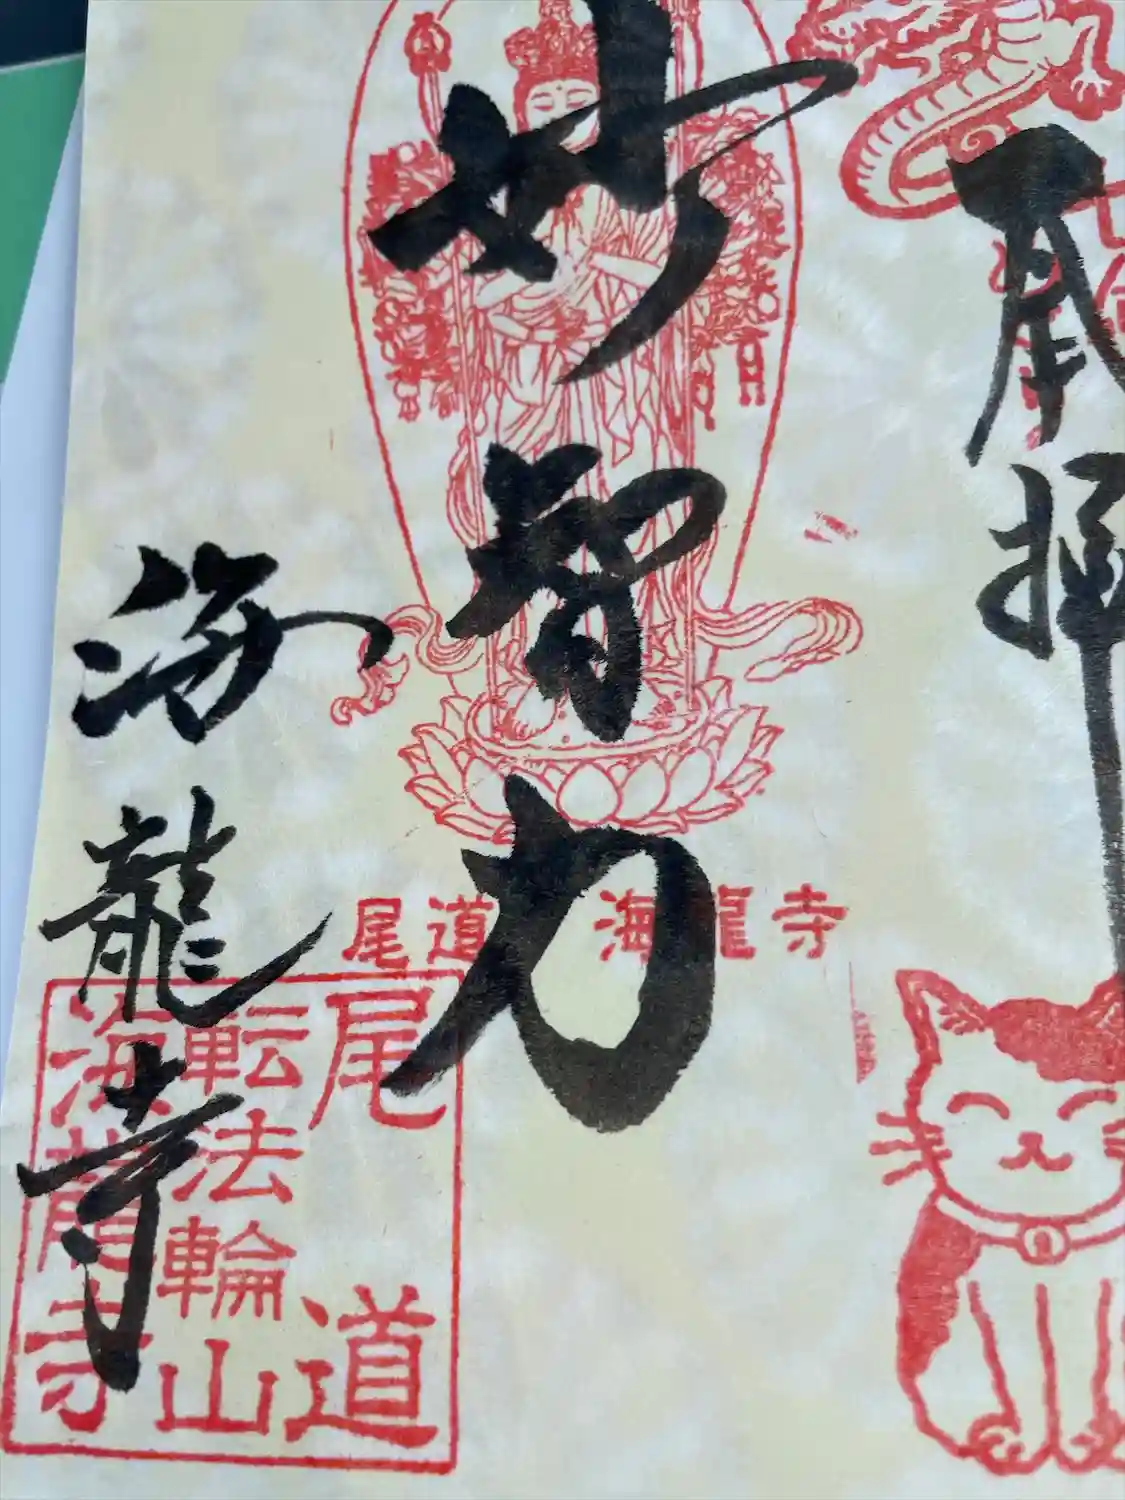 奉拝
妙智力
海龍寺
尾道 海龍寺
尾道
転法輪山
海龍寺